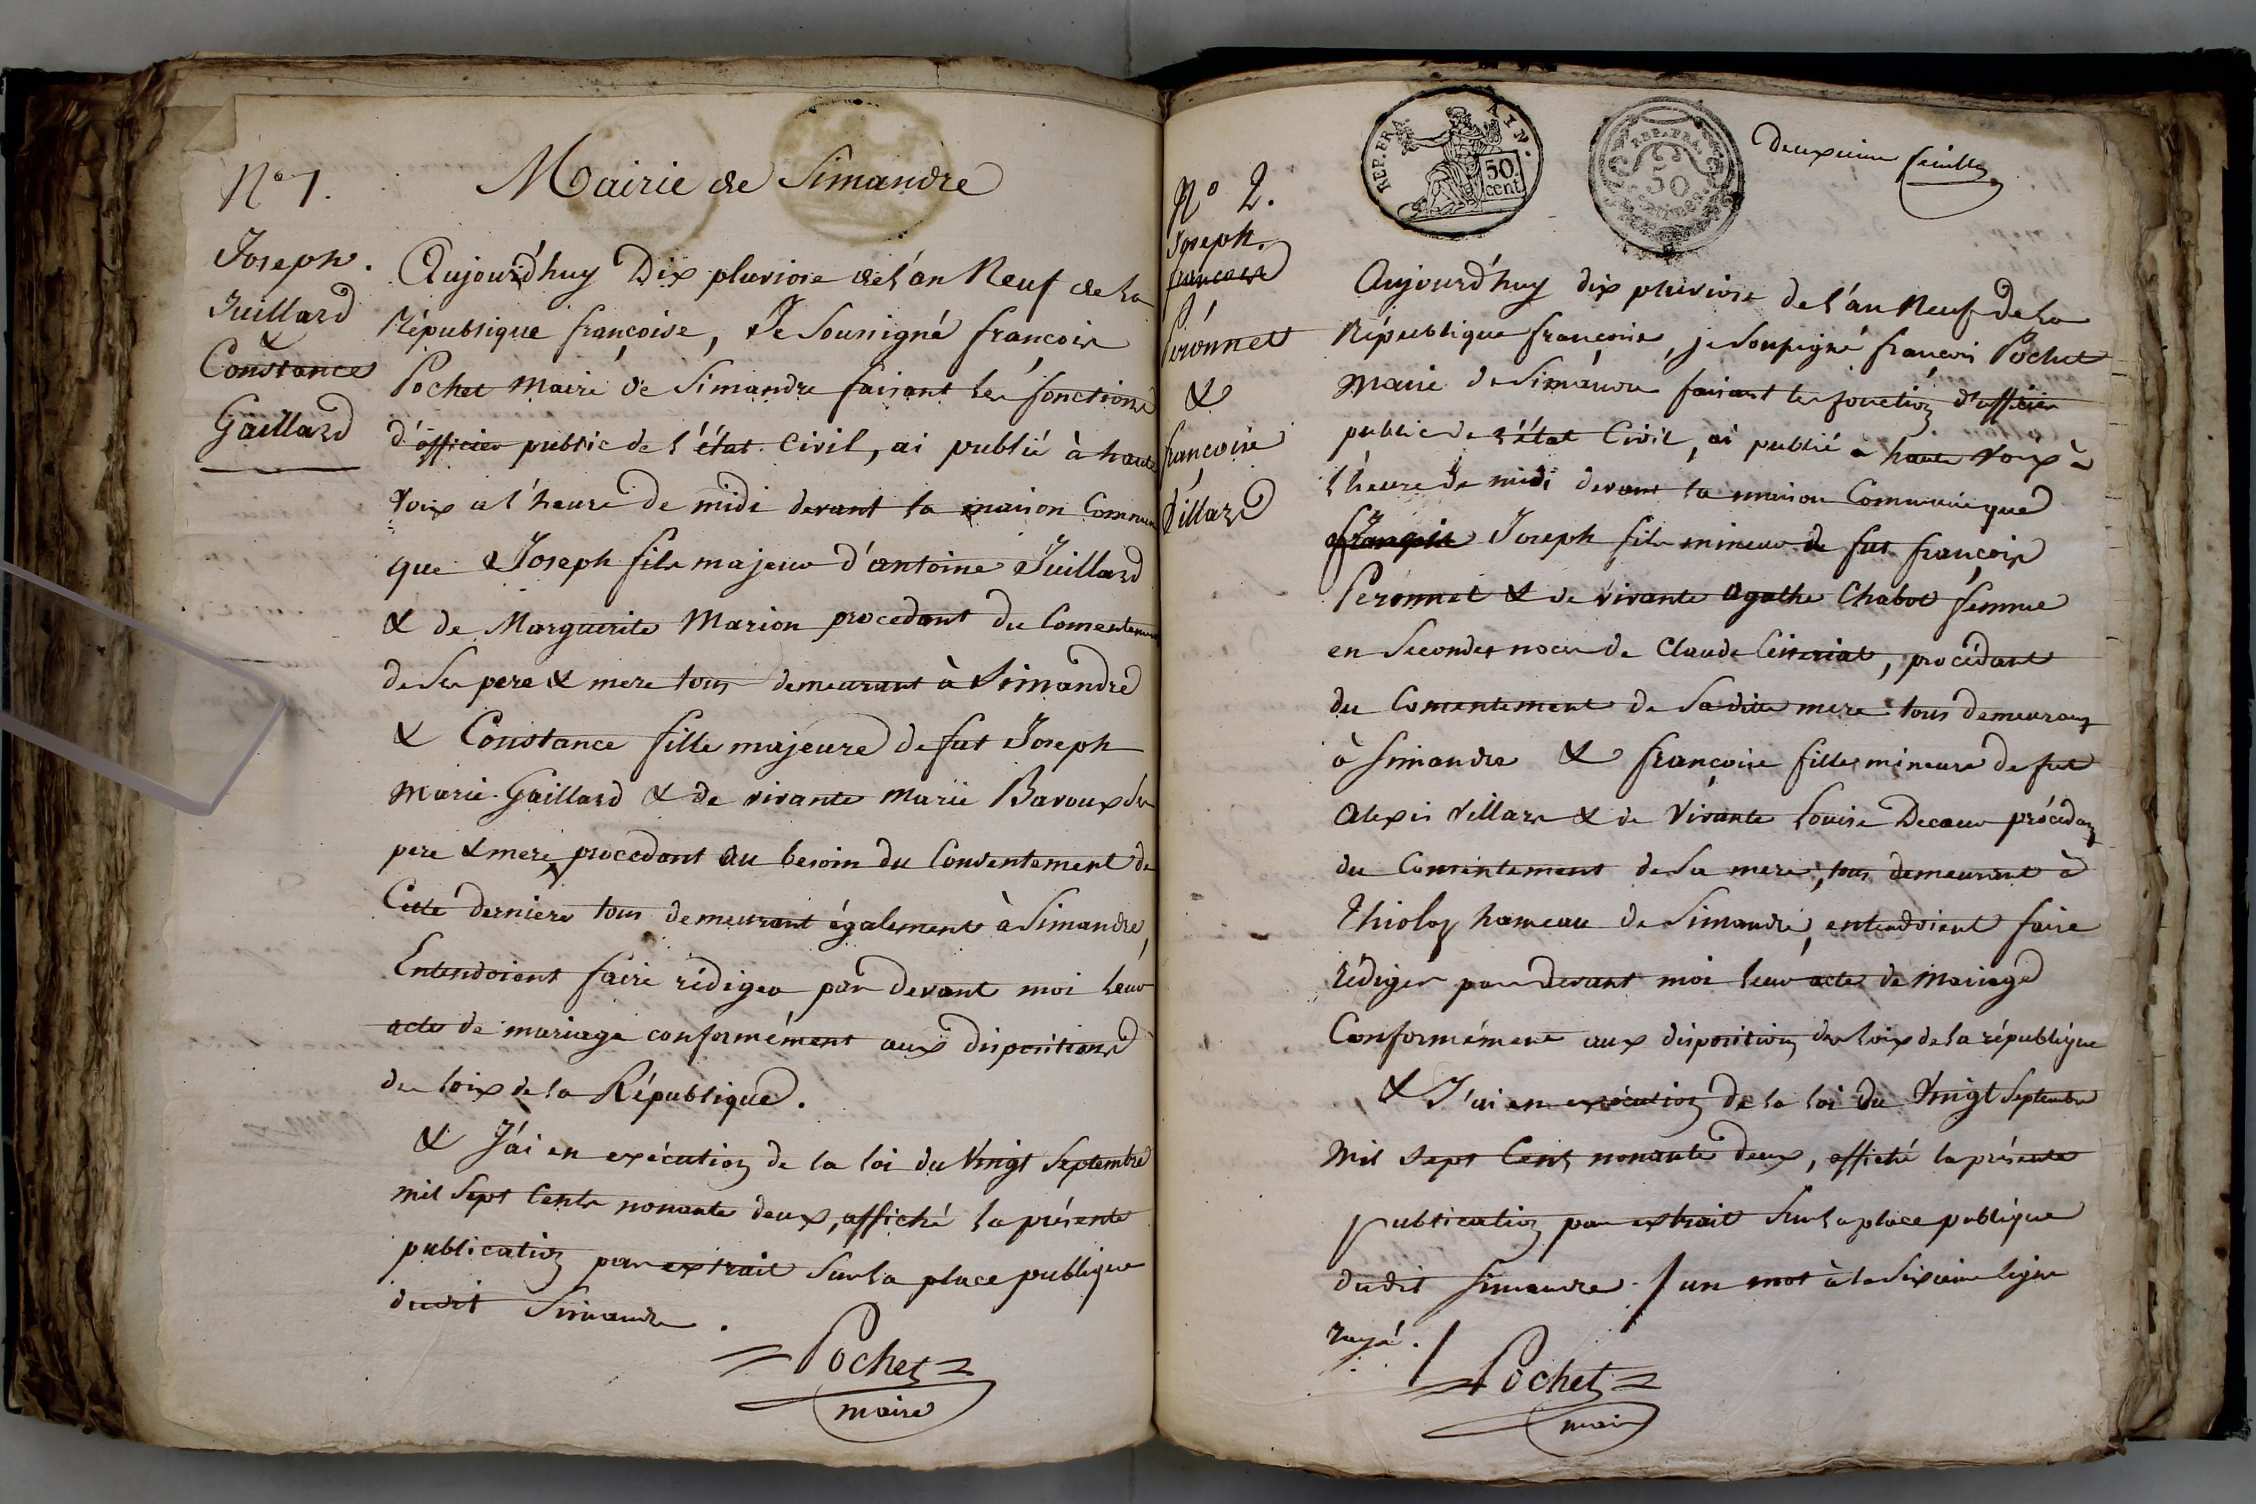 N° 1.
Mairie de Simandre
Joseph.
Juillard
&
Constance
Gaillard
Aujourd'huy Dix pluviose de l'an Neuf de la
République françoise, Je Soussigné françois
Pochet Maire de Simandre faisant les fonctions
d'officier public de l'état Civil, ai publié à haute
voix a l'heure de midi devant la maison Commune
que Joseph fils majeur d'antoine Juillard
& de Marguerite Marion procedant du Consentement
de Ses pere & mere tous demeurant à Simandre
& Constance fille majeure de fut Joseph
Marie Gaillard & de vivante Marie Bavoux Ses
pere & mere procedant au besoin du Consentement de
Cette derniere tous demeurant également à Simandre,
Entendoient faire rédiger par devant moi leur
acte de mariage conformément aux dispositions
des loix de la République.
& J'ai en exécution de la loi du Vingt Septembre
mil Sept Cents nonante deux, affiché la présente
publication par extrait Sur la place publique
dudit Simandre.
Pochet
maire
REP. FRA. AIN.
50
cent.
REP. FRA.
50
deuxieme feuille
N° 2.
Joseph.
francois
Péronnet
&
françoise
Villard
Aujourd'huy dix pluviose de l'an Neuf de la
République françoise, je soussigné françois Pochet
Maire de Simandre faisant les fonction d'officier
public de l'état Civil, ai publié a haute voix à
l'heure de midi devant la maison Commune que
françois Joseph fils mineur de fut françois
Peronnet & de vivante Agathe Chabot femme
en Secondes noces de Claude, procédant
du Consentement de Sa dite mere tous demeurans
à Simandre & françoise fille mineure de fut
Alexis Villars & de Vivante Louise Decoeur procédant
du Consentement de Sa mere, tous demeurant à
Thioloz hameau de Simandre, entendoient faire
rédiger par devant moi leur acte de Mariage
Conformément aux disposition des loix de la république
& J'ai en exécution de la loi du Vingt Septembre
Mil Sept Cent nonante deux, affiché la présente
publication par extrait Sur la place publique
dudit Simandre. / un mot à la Sixieme ligne
rayé. /
Pochet
maire